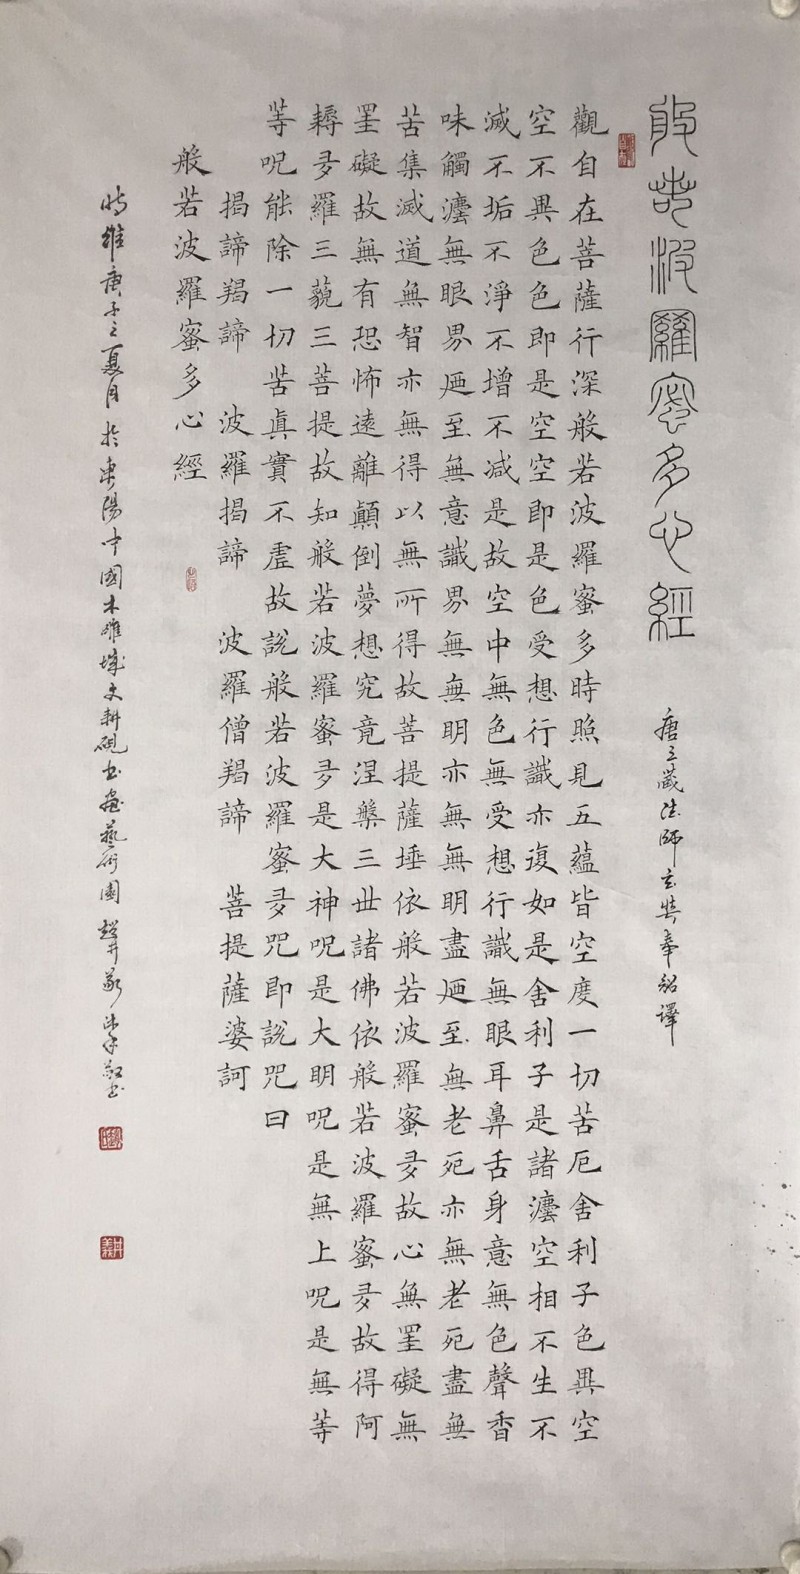 般若波羅蜜多心經
唐三藏法師玄奘奉詔譯
觀自在菩薩行深般若波羅蜜多時照見五蘊皆空度一切苦厄舍利子色異空
空不異色色即是空空即是色受想行識亦復如是舍利子是諸灋空相不生不
滅不垢不淨不增不减是故空中無色無受想行識無眼耳鼻舌身意無色聲香
味觸灋無眼界廼至無意識界無無明亦無無明盡廼至無老死亦無老死盡無
苦集滅道無智亦無得以無所得故菩提薩埵依般若波羅蜜多故心無罣礙無
罣礙故無有恐怖遠離顛倒夢想究竟涅槃三世諸佛依般若波羅蜜多故得阿
耨多羅三藐三菩提故知般若波羅蜜多是大神呪是大明呪是無上呪是無等
等呪能除一切苦真實不虛故說般若波羅蜜多咒即說咒曰
揭諦羯諦 波羅揭諦 波羅僧羯諦 菩提薩婆訶
般若波羅蜜多心經
時維庚子之夏月於東陽中國木雕城文耕硯書畫藝術園 趙丹義沐手敬書
丹義